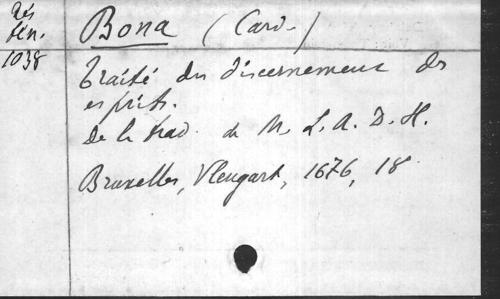 Rés
fén.
1038
Bona (Card.
Traité du discernement des
esprits.
de la trad. de M. L. A. D. H.
Bruxelles, Vleugart, 1676, 18